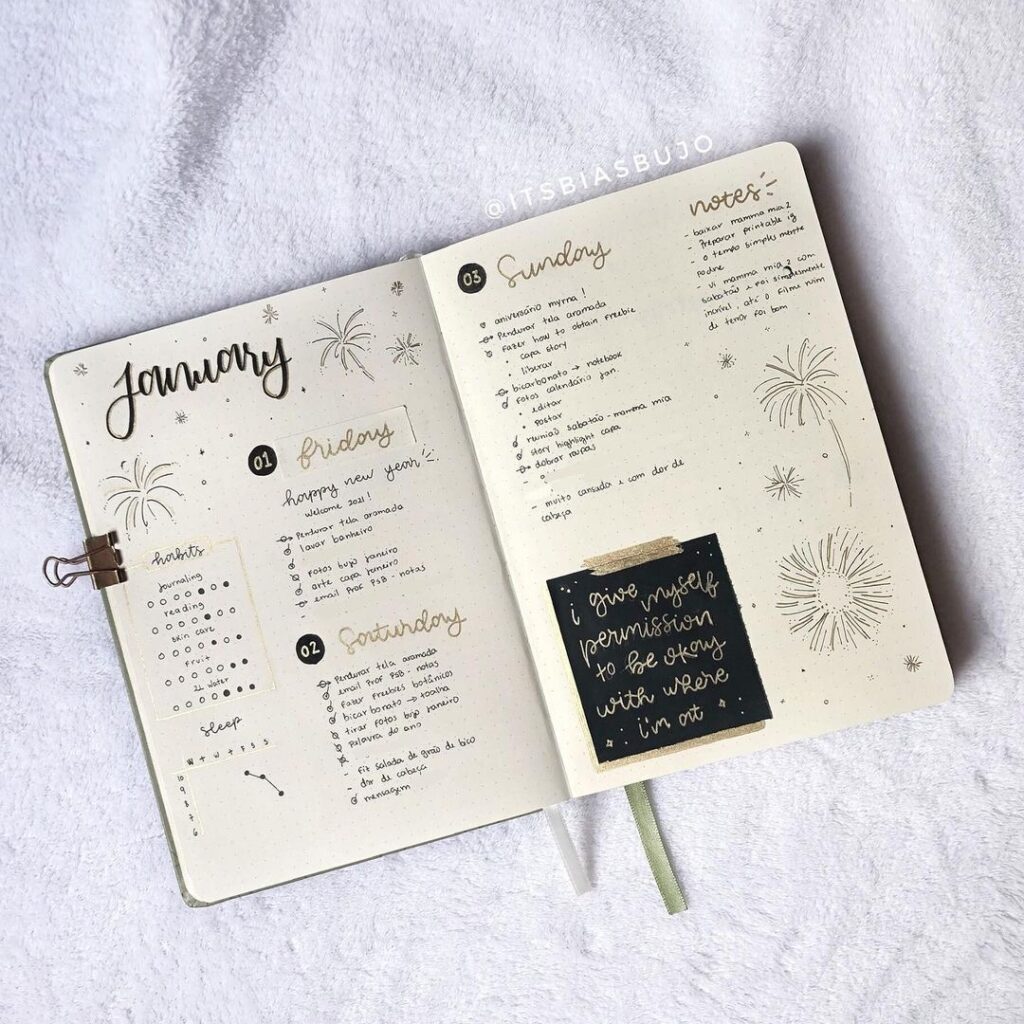 @ITSBIASBUJO
january
01 friday
happy new year
welcome 2021!
Pendurar tela aramada
lavar banheiro
Fotos bujo janeiro
arte capa janeiro
email Prof PSB - notas
habits
journaling
reading
skin care
Fruit
2L water
sleep
M T W T F S S
10
9
8
7
6
02 Saturday
Pendurar tela aramada
email Prof PSB - notas
Fazer freebies botânicos
bicarbonato → toalha
tirar fotos bujo janeiro
Palavra do ano
- Fiz salada de grão de bico
- dor de cabeça
mensagem
03 Sunday
aniversário myrna!
Pendurar tela aramada
Fazer how to obtain freebie
• capa story
• liberar
bicarbonato → notebook
Fotos calendário jan.
• editar
• postar
reunião sabatão - mamma mia
story highlight capa
dobrar roupas
- muito cansada e com dor de
cabeça
notes
- baixar mamma mia 2
- Preparar printable ig
- o tempo simplesmente
podre
- vi mamma mia 2 com
sabatão e foi simplesmente
incrível, até o filme
de terror foi bom
i give myself
permission
to be okay
with where
i'm at